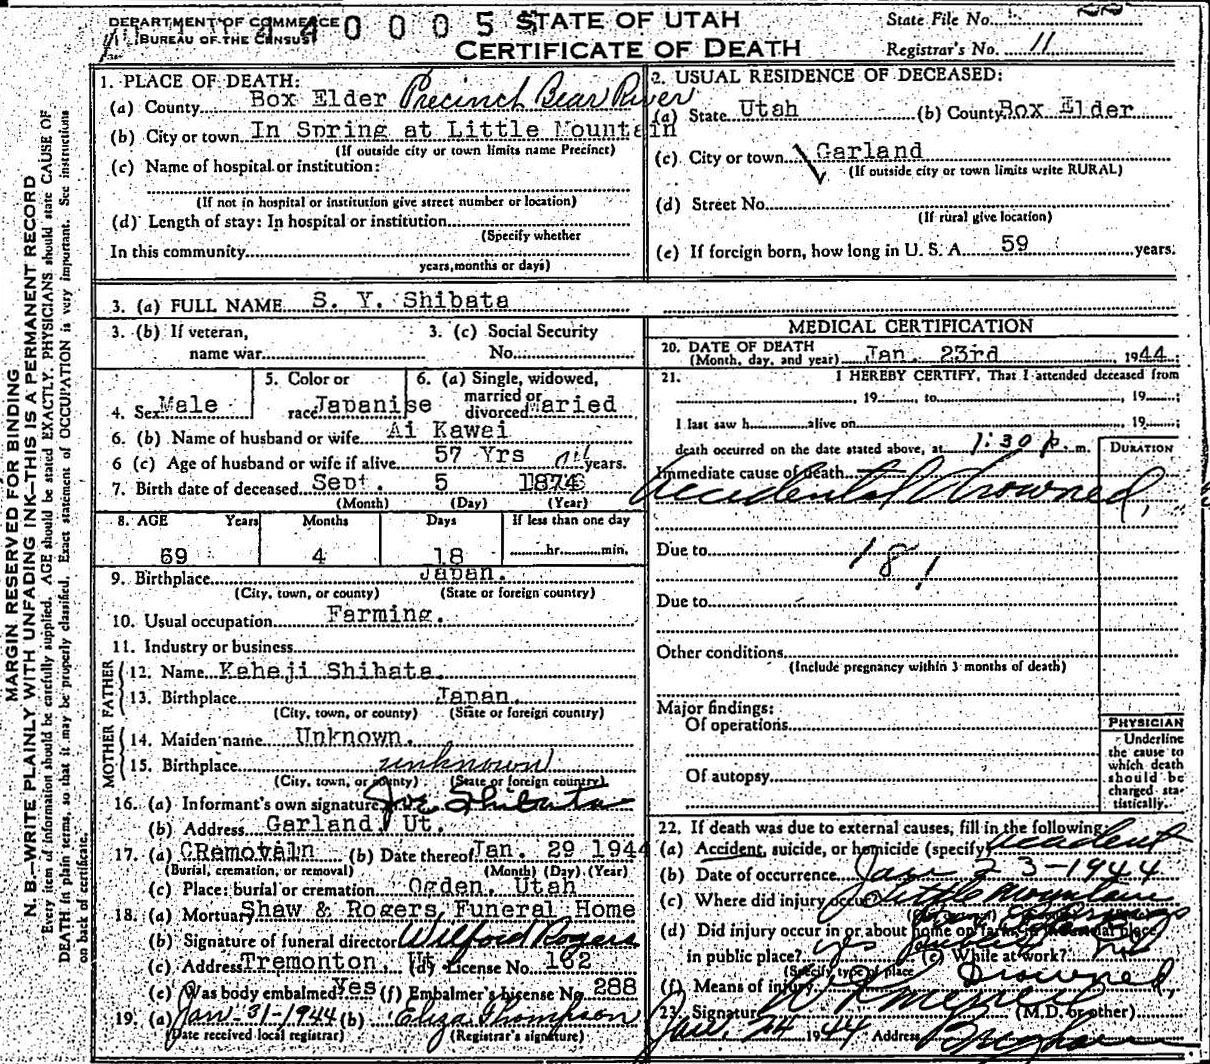 DEPARTMENT OF COMMERCE
BUREAU OF THE CENSUS
44 0005
STATE OF UTAH
CERTIFICATE OF DEATH
State File No.
Registrar's No. 11
MARGIN RESERVED FOR BINDING
N. B.—WRITE PLAINLY WITH UNFADING INK—THIS IS A PERMANENT RECORD
Every item of information should be carefully supplied. AGE should be stated EXACTLY. PHYSICIANS should state CAUSE OF
DEATH in plain terms, so that it may be properly classified. Exact statement of OCCUPATION is very important. See instructions
on back of certificate.
1. PLACE OF DEATH:
(a) County Box Elder Precinct Bear River
(b) City or town In Spring at Little Mountain
(If outside city or town limits name Precinct)
(c) Name of hospital or institution:
(If not in hospital or institution give street number or location)
(d) Length of stay: In hospital or institution
(Specify whether
In this community
years, months or days)
2. USUAL RESIDENCE OF DECEASED:
(a) State Utah (b) County Box Elder
(c) City or town Garland
(If outside city or town limits write RURAL)
(d) Street No.
(If rural give location)
(e) If foreign born, how long in U. S. A. 59 years.
3. (a) FULL NAME S. Y. Shibata
3. (b) If veteran,
name war
3. (c) Social Security
No.
4. Sex Male
5. Color or
race Japanise
6. (a) Single, widowed,
married or
divorced Maried
6. (b) Name of husband or wife Ai Kawei
6 (c) Age of husband or wife if alive 57 Yrs years.
7. Birth date of deceased Sept. 5 1874
(Month) (Day) (Year)
8. AGE Years Months Days If less than one day
69 4 18 hr. min.
9. Birthplace Japan.
(City, town, or county) (State or foreign country)
10. Usual occupation Farming.
11. Industry or business
FATHER
12. Name Keheji Shibata.
13. Birthplace Japan.
(City, town, or county) (State or foreign country)
MOTHER
14. Maiden name Unknown.
15. Birthplace unknown
(City, town, or county) (State or foreign country)
16. (a) Informant's own signature Joe Shibata
(b) Address Garland, Ut.
17. (a) CRemovaln (b) Date thereof Jan. 29 1944
(Burial, cremation, or removal) (Month) (Day) (Year)
(c) Place: burial or cremation Ogden, Utah
18. (a) Mortuary Shaw & Rogers Funeral Home
(b) Signature of funeral director Wilford Rogers
(c) Address Tremonton, Ut (d) License No. 162
(e) Was body embalmed? Yes (f) Embalmer's License No. 288
19. (a) Jan-31-1944 (b) Eliza Thompson
(Date received local registrar) (Registrar's signature)
MEDICAL CERTIFICATION
20. DATE OF DEATH
(Month, day, and year) Jan. 23rd 1944;
21. I HEREBY CERTIFY, That I attended deceased from
, 19 , to , 19 ;
I last saw h alive on , 19 ;
death occurred on the date stated above, at 1:30 p. m.
DURATION
Immediate cause of death
Accidental Drowned,
Due to 181
Due to
Other conditions
(Include pregnancy within 3 months of death)
Major findings:
Of operations
Of autopsy
PHYSICIAN
Underline
the cause to
which death
should be
charged sta-
tistically.
22. If death was due to external causes, fill in the following:
(a) Accident, suicide, or homicide (specify) Accident
(b) Date of occurrence Jan 23-1944
(c) Where did injury occur? Little Mountain
Springs
(d) Did injury occur in or about home on farm, in industrial place,
in public place? yes public (e) While at work? no
(Specify type of place)
(f) Means of injury Drowned,
23. Signature W Merrell (M.D. or other)
Jan. 24 1944 Address Brigham